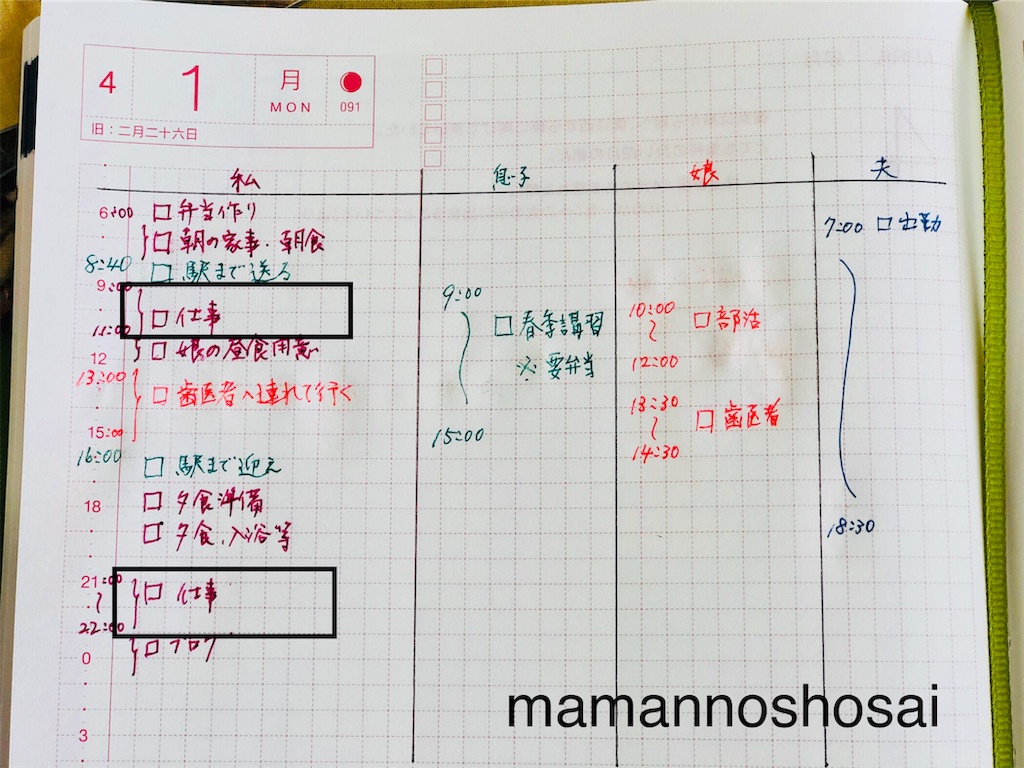 4 1 月 MON 091
旧：二月二十六日
私 息子 娘 夫
6:00 □ 弁当作り
□ 朝の家事・朝食
8:40 □ 駅まで送る
9:00
□ 仕事
11:00
12 □ 娘の昼食用意
13:00
□ 歯医者へ連れて行く
15:00
16:00 □ 駅まで迎え
□ 夕食準備
18
□ 夕食、入浴等
21:00
〜 □ 仕事
22:00
□ ブログ
0
3
9:00
〜 □ 春季講習
※要弁当
15:00
10:00
〜 □ 部活
12:00
13:30
〜 □ 歯医者
14:30
7:00 □ 出勤
18:30
mamannoshosai